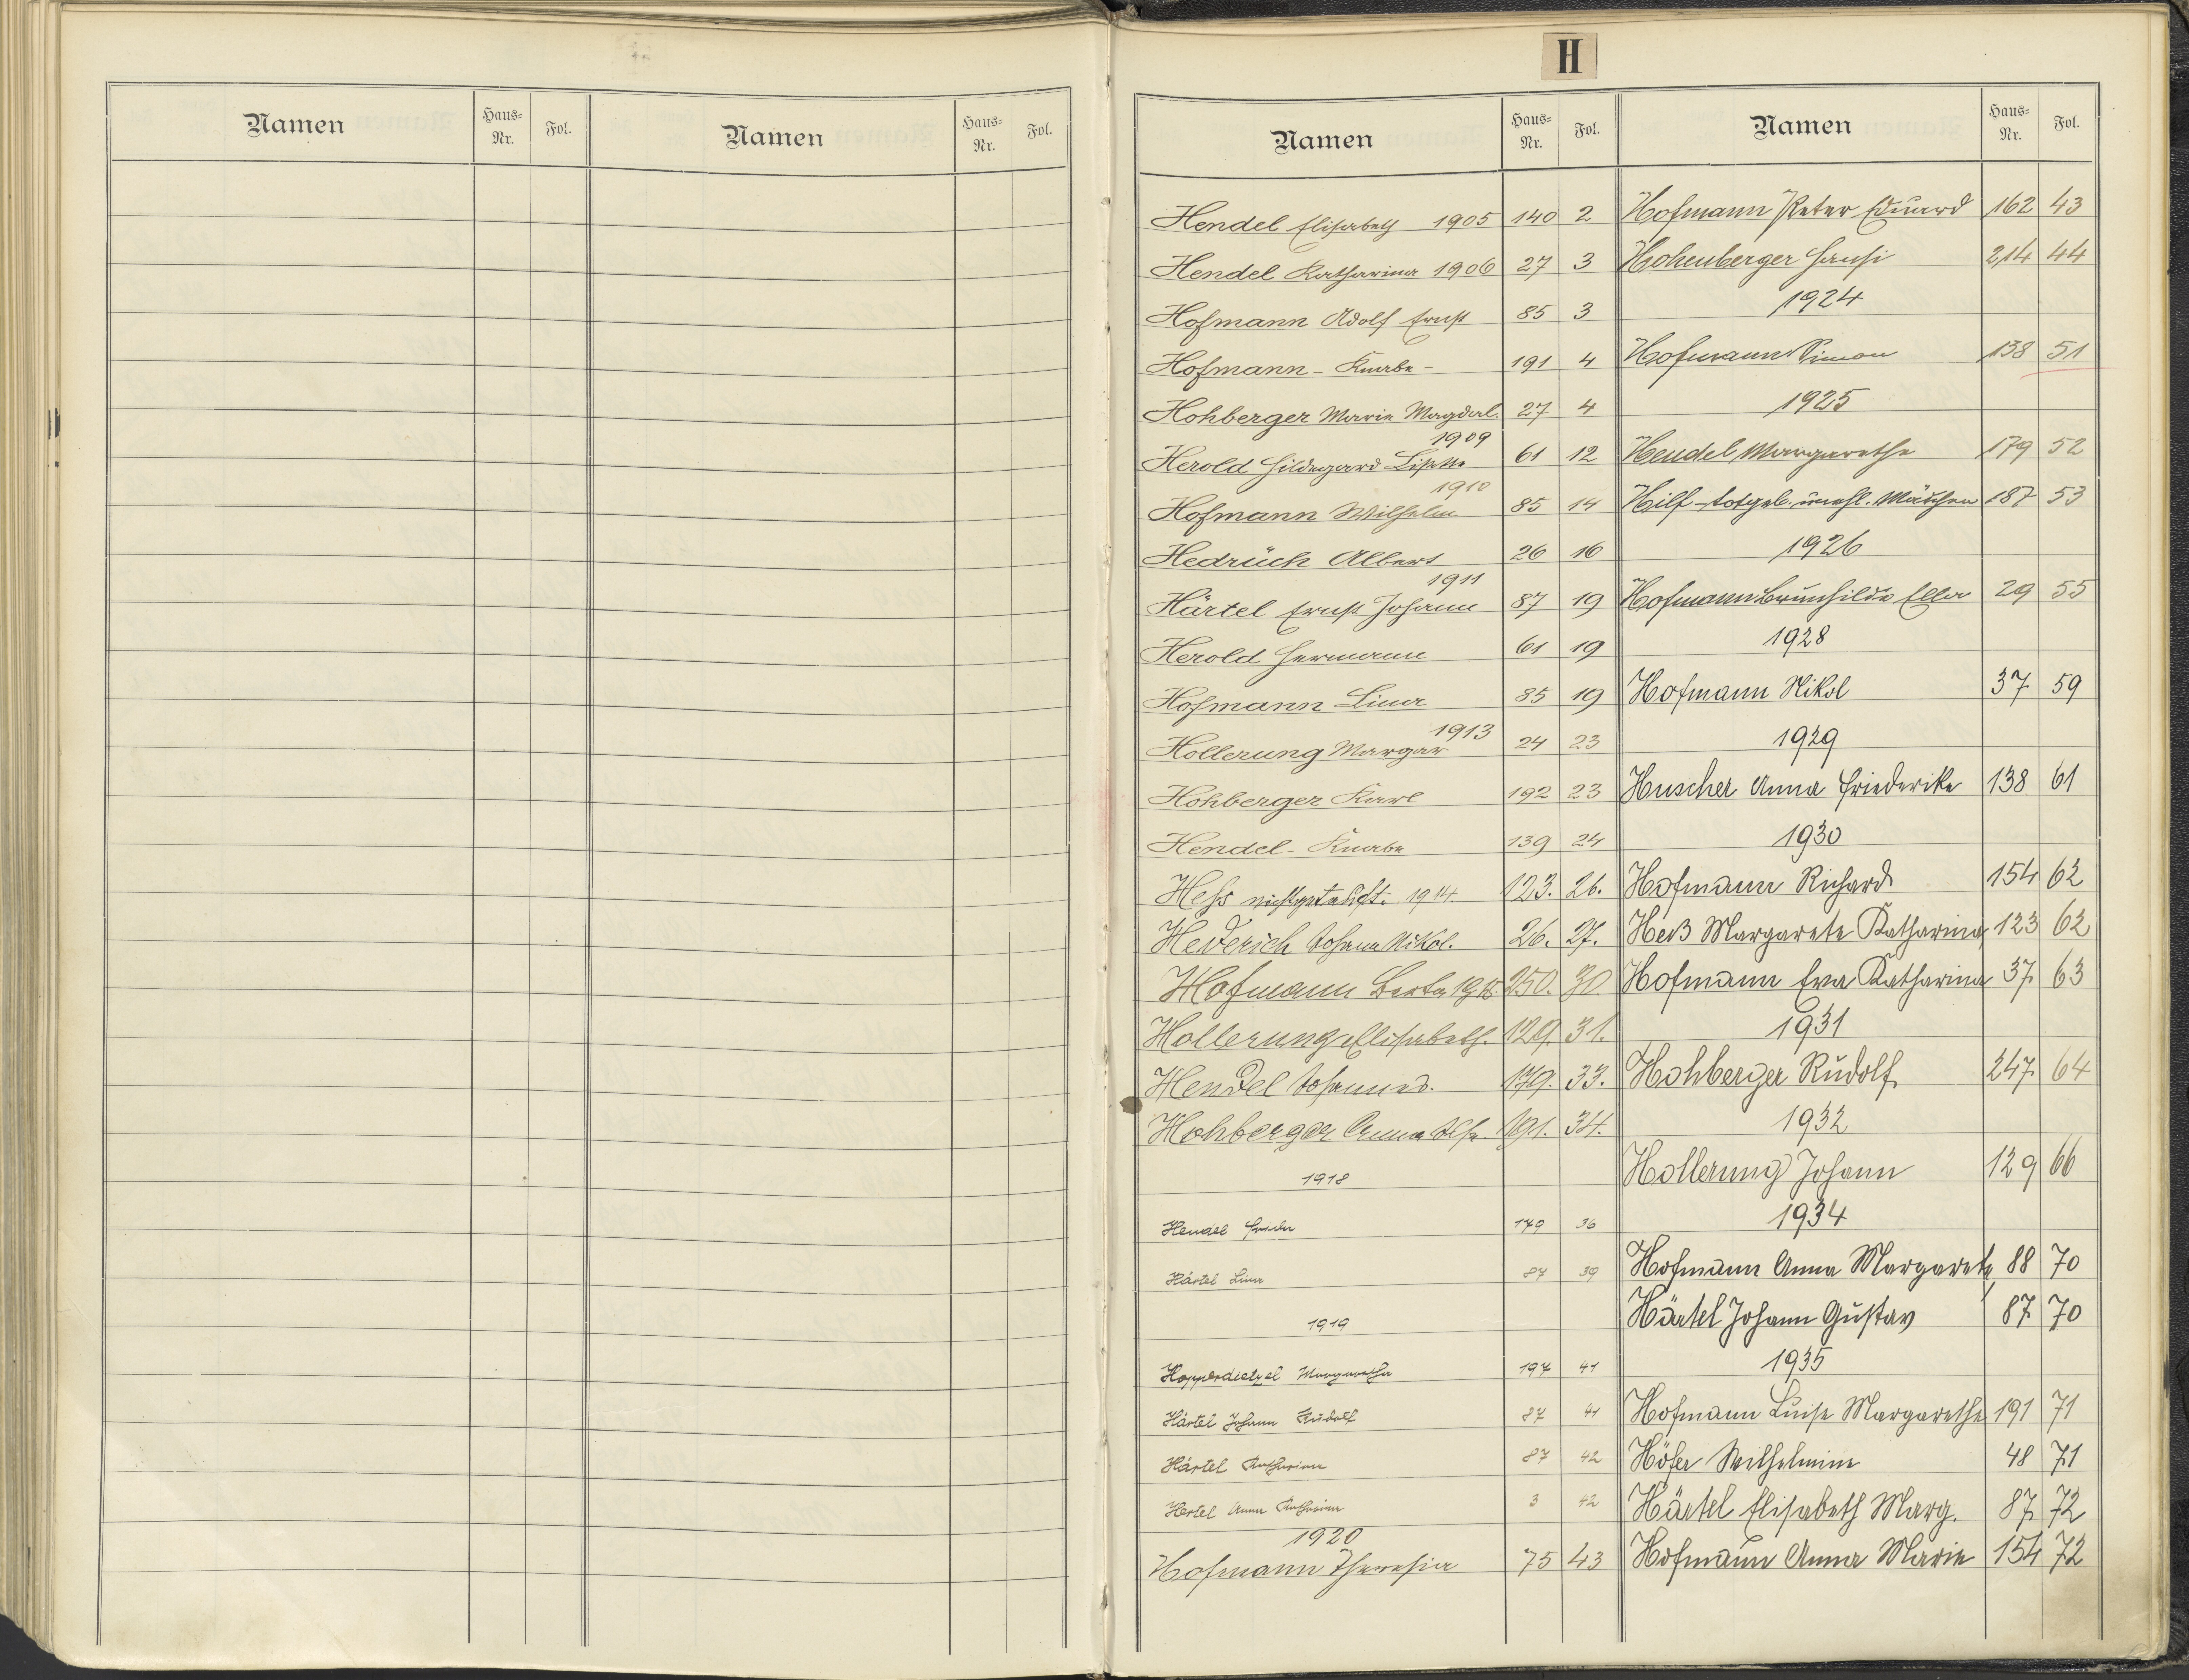 Namen Haus-Nr. Fol. Namen Haus-Nr. Fol.
H
Namen Haus-Nr. Fol. Namen Haus-Nr. Fol.
Hendel Elisabeth 1905 140 2
Hendel Katharina 1906 27 3
Hofmann Adolf Ernst 85 3
Hofmann - Knabe - 191 4
Hohberger Marie Magdal. 27 4
1909
Herold Hildegard Lisette 61 12
1910
Hofmann Wilhelm 85 14
Hedrüch Albert 26 16
1911
Härtel Ernst Johann 87 19
Herold Hermann 61 19
Hofmann Lina 85 19
1913
Hollerung Margar 24 23
Hohberger Karl 192 23
Hendel - Knabe 139 24
Heß nichtgetauft. 1914. 123. 26.
Hederich Johann Nikol. 26. 27.
Hofmann Berta 250. 30.
Hollerung Elisabeth. 129. 31.
Hendel Johannes. 179. 33.
Hohberger Anna Els. 191. 34.
1918
Hendel Frieda 179 36
Härtel Lina 87 39
1919
Hopperdietzel Margaretha 197 41
Härtel Johann Rudolf 87 41
Härtel Katharina 87 42
Hertel Anna Katharina 3 42
1920
Hofmann Theresia 75 43
Hofmann Peter Eduard 162 43
Hohenberger Hansi 214 44
1924
Hofmann Simon 138 51
1925
Hendel Margarethe 179 52
Hilf - totgeb. unehl. Mädchen 187 53
1926
Hofmann Brunhilde Ella 29 55
1928
Hofmann Nikol 37 59
1929
Huscher Anna Friederike 138 61
1930
Hofmann Richard 154 62
Heß Margarete Katharina 123 62
Hofmann Eva Katharina 37 63
1931
Hohberger Rudolf 247 64
1932
Hollerung Johann 129 66
1934
Hofmann Anna Margarete 88 70
Härtel Johann Gustav 87 70
1935
Hofmann Luise Margarethe 191 71
Höfer Wilhelmine 48 71
Härtel Elisabeth Marg. 87 72
Hofmann Anna Marie 154 72